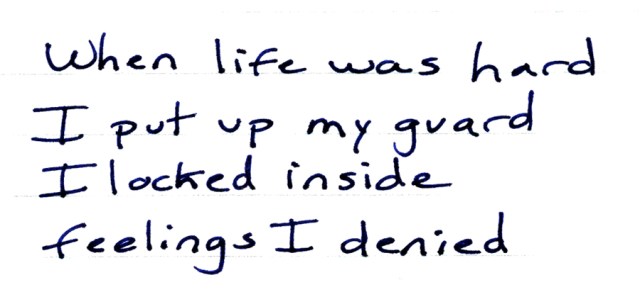 When life was hard
I put up my guard
I locked inside
feelings I denied